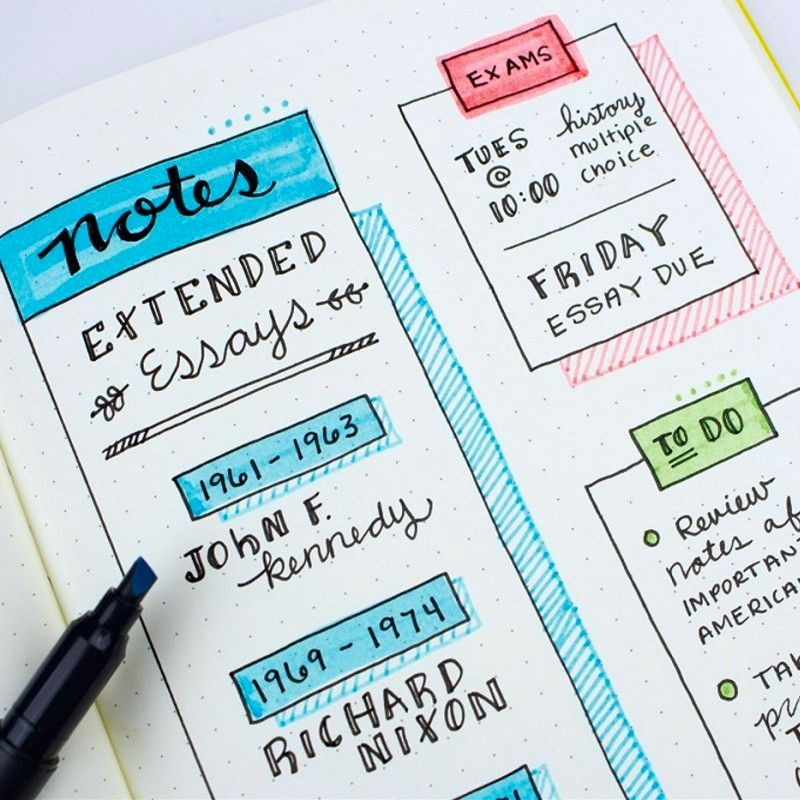 notes
EXTENDED
Essays
1961 - 1963
JOHN F.
kennedy
1969 - 1974
RICHARD
NIXON
EXAMS
TUES
@
10:00
history
multiple
choice
FRIDAY
ESSAY DUE
TO DO
Review
notes
IMPORTANT
AMERICA